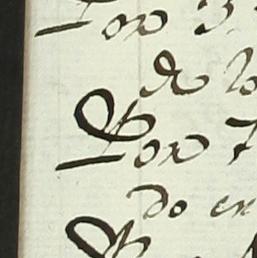 Por 3
de lo
Por 7
do en